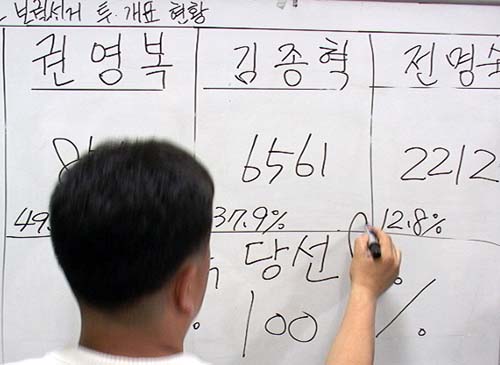 보궐선거 투·개표 현황
권영복 김종혁 전명
6561 2212
37.9% 12.8%
당선
100 %